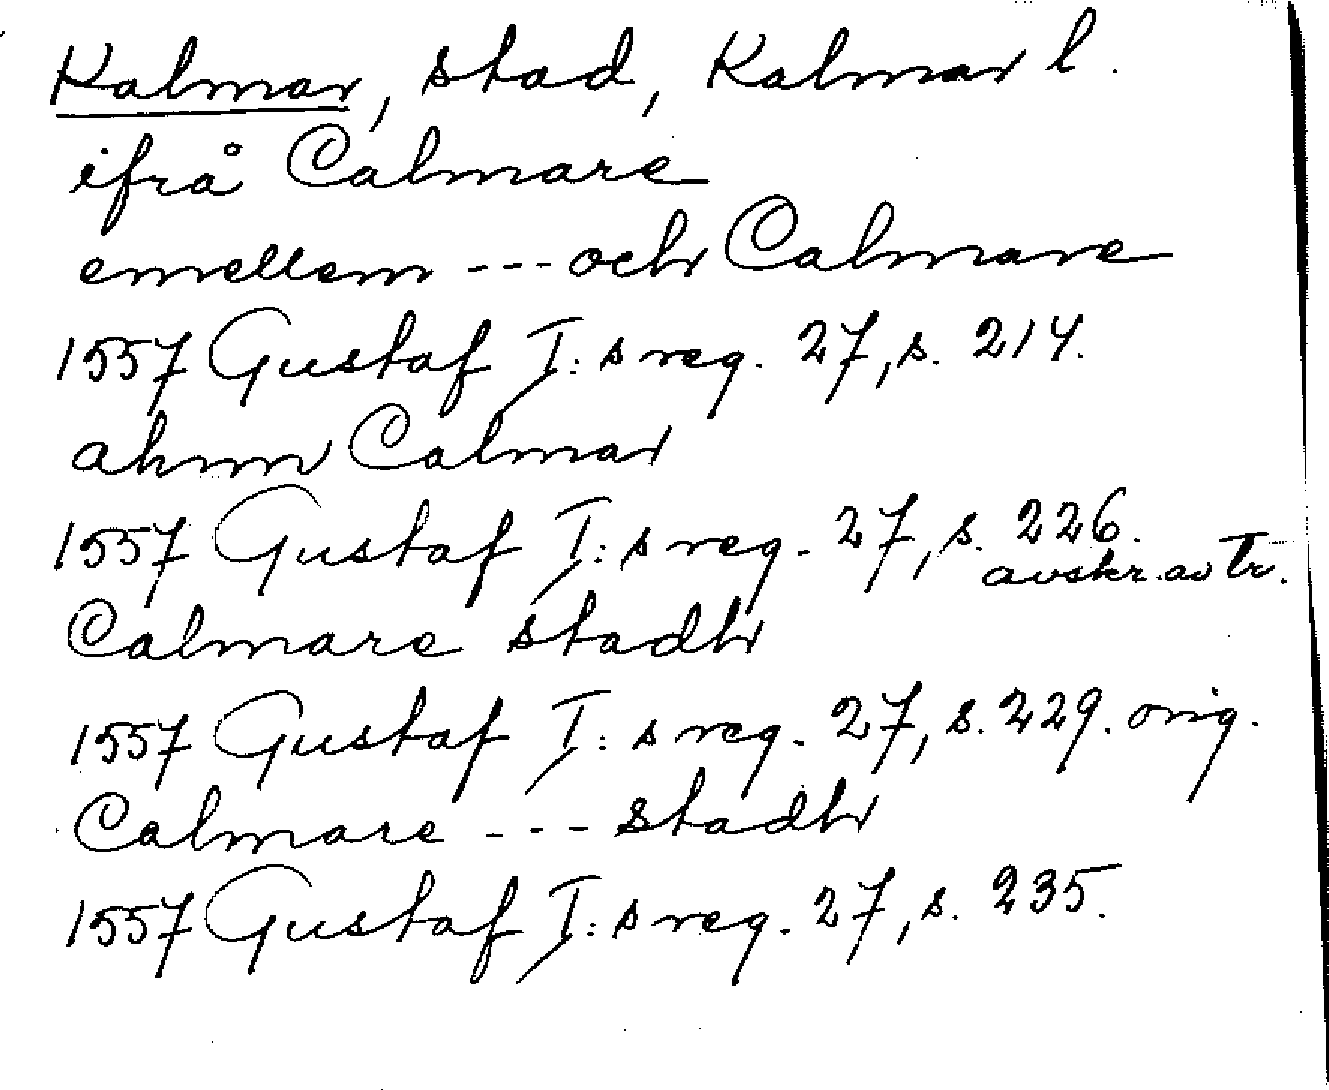 Kalmar, stad, Kalmar l.
ifrå Calmare
emellem --- och Calmare
1557 Gustaf I:s reg. 27, s. 214.
ahnn Calmar
1557 Gustaf I:s reg. 27, s. 226.
avskr. av Tr.
Calmare stadh
1557 Gustaf I:s reg. 27, s. 229. orig.
Calmare --- stadh
1557 Gustaf I:s reg. 27, s. 235.